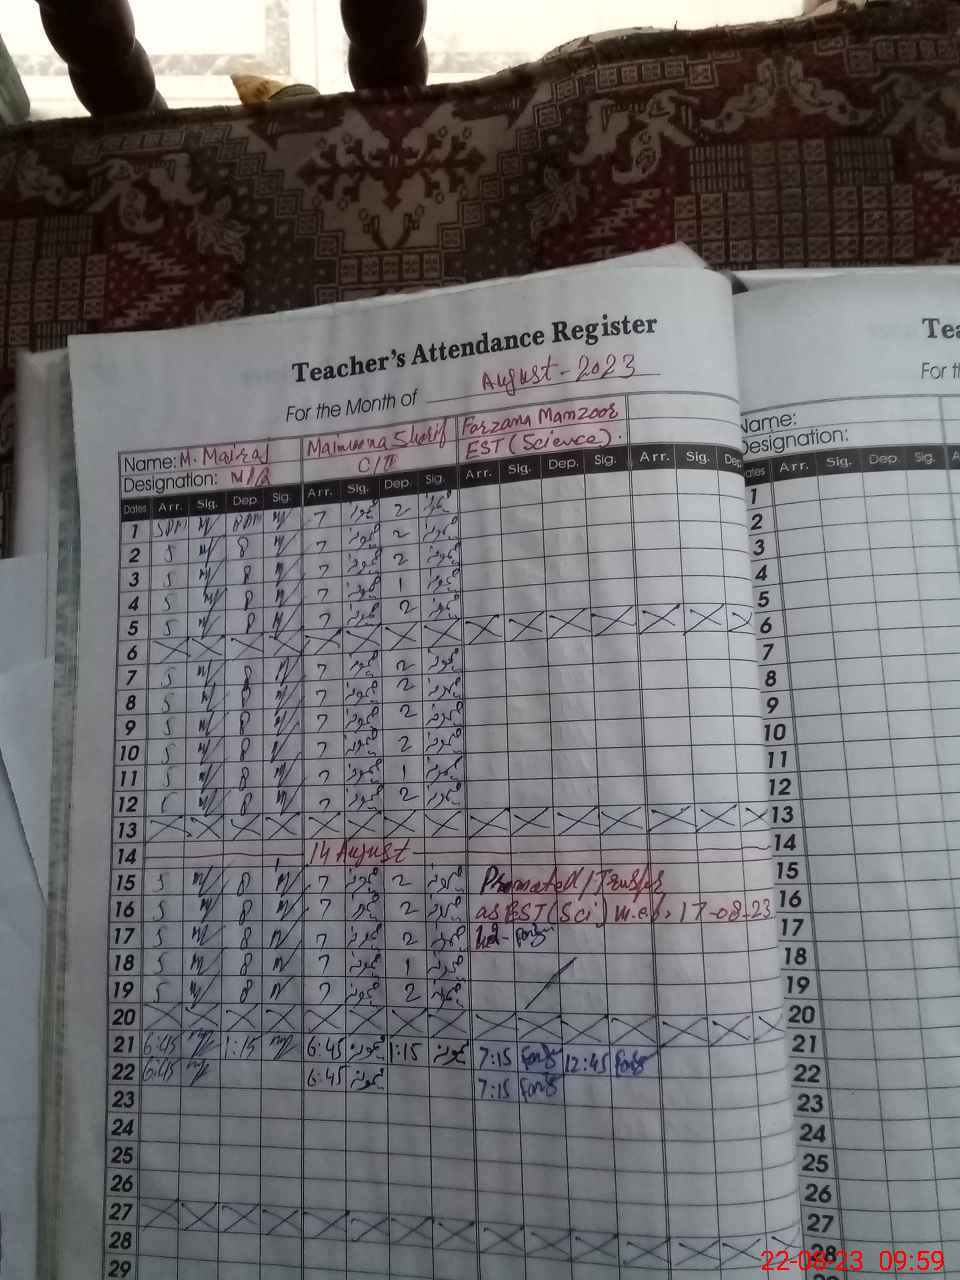 Teacher's Attendance Register
For the Month of August-2023
Name: M. Majraj Maimoona Sharif Farzana Mamzoor
Designation: N/Q C/II EST (Science).
Dates Arr. Sig. Dep. Sig. Arr. Sig. Dep. Sig. Arr. Sig. Dep. Sig. Arr. Sig. Dep
1 5PM 8PM 7 2
2 5 8 7 2
3 5 8 7 2
4 5 8 7 1
5 5 8 7 2
6
7 5 8 7 2
8 5 8 7 2
9 5 8 7 2
10 5 8 7 2
11 5 8 7 1
12 5 8 7 2
13
14 14 August
15 5 8 7 2 Promoted/Transfer
16 5 8 7 2 as EST (Sci) w.e.f. 17-08-23
17 5 8 7 2
18 5 8 7 1
19 5 8 7 2
20
21 6:45 1:15 6:45 1:15 7:15 12:45
22 6:45 6:45 7:15
23
24
25
26
27
28
29
Tea
For th
Name:
Designation:
ates Arr. Sig. Dep. Sig. A
1
2
3
4
5
6
7
8
9
10
11
12
13
14
15
16
17
18
19
20
21
22
23
24
25
26
27
28
22-08-23 09:59